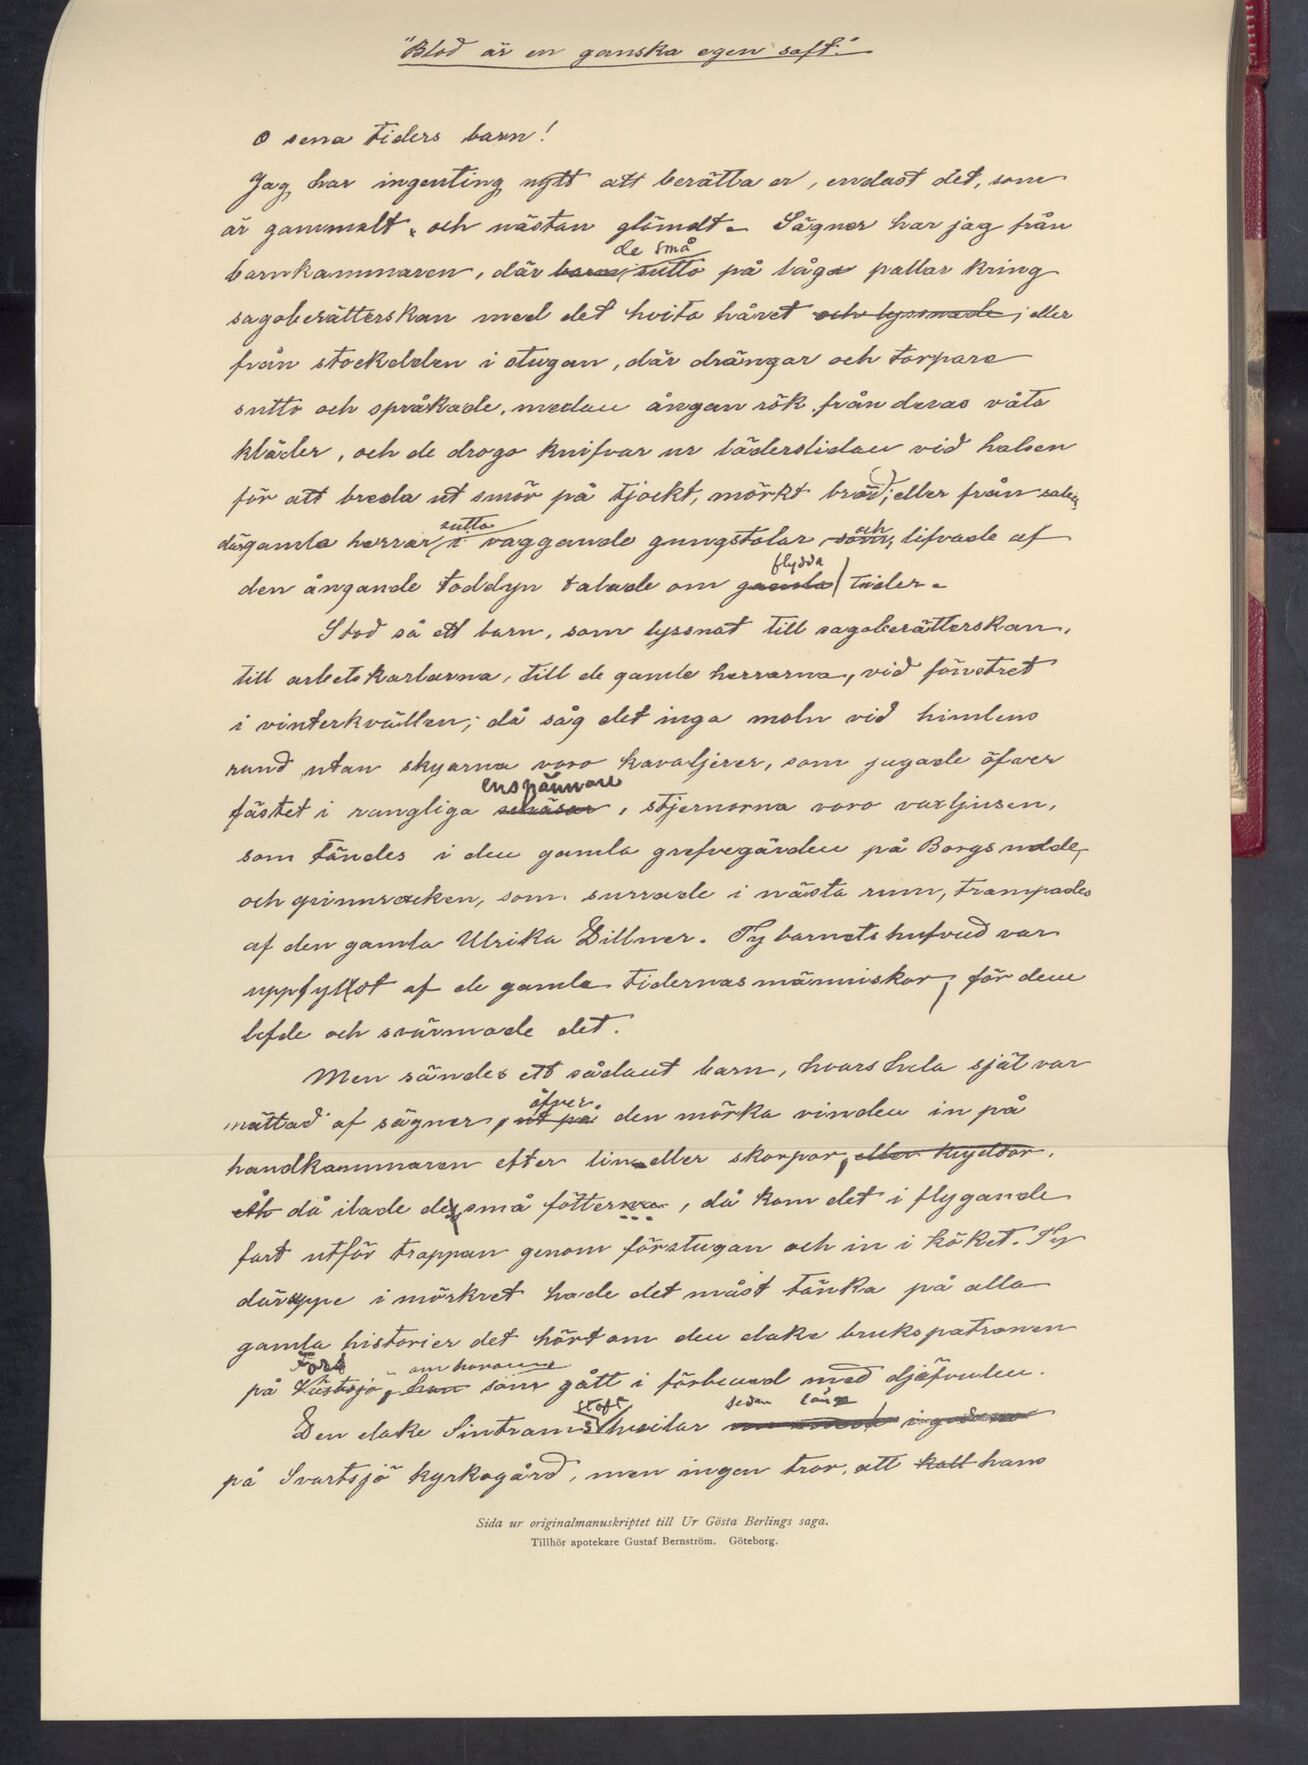 "Blod är en ganska egen saft."
O sena tiders barn!
Jag har ingenting nytt att berätta er, endast det, som
är gammalt och nästan glömdt. Sägner har jag från
de små
barnkammaren, där barnen sutto på låga pallar kring
sagoberätterskan med det hvita håret och lyssnade, eller
från stockelden i stugan, där drängar och torpare
sutto och språkade, medan ångan rök från deras våta
kläder, och de drogo knifvar ur läderslidan vid halsen
för att breda ut smör på tjockt, mörkt bröd; eller från salen,
sutto och
där gamla herrar i vaggande gungstolar som, lifvade af
flydda
den ångande toddyn talade om gamla tider.
Stod så ett barn, som lyssnat till sagoberätterskan,
till arbetskarlarna, till de gamla herrarna, vid fönstret
i vinterkvällen; då såg det inga moln vid himlens
rand utan skyarna voro kavaljerer, som jagade öfver
enspännare
fästet i rangliga schäsar, stjernorna voro vaxljusen,
som tändes i den gamla grefvegården på Borgs udde,
och spinnrocken, som surrade i nästa rum, trampades
af den gamla Ulrika Dillner. Ty barnets hufvud var
uppfyllot af de gamla tidernas människor, för dem
lefde och svärmade det.
Men sändes ett sådant barn, hvars hela själ var
öfver
mättad af sägner, ut på den mörka vinden in på
handkammaren efter lin eller skorpor, eller kryddor,
åh då ilade de små fötterna, då kom det i flygande
fart utför trappan genom förstugan och in i köket. Ty
däruppe i mörkret hade det måst tänka på alla
gamla historier det hört om den elake brukspatronen
Fors om honom
på Västsjö, han som gått i förbund med djäfvulen.
stoft sedan länge
Den elake Sintrams hvilar
på Svartsjö kyrkogård, men ingen tror, att kall hans
Sida ur originalmanuskriptet till Ur Gösta Berlings saga.
Tillhör apotekare Gustaf Bernström. Göteborg.